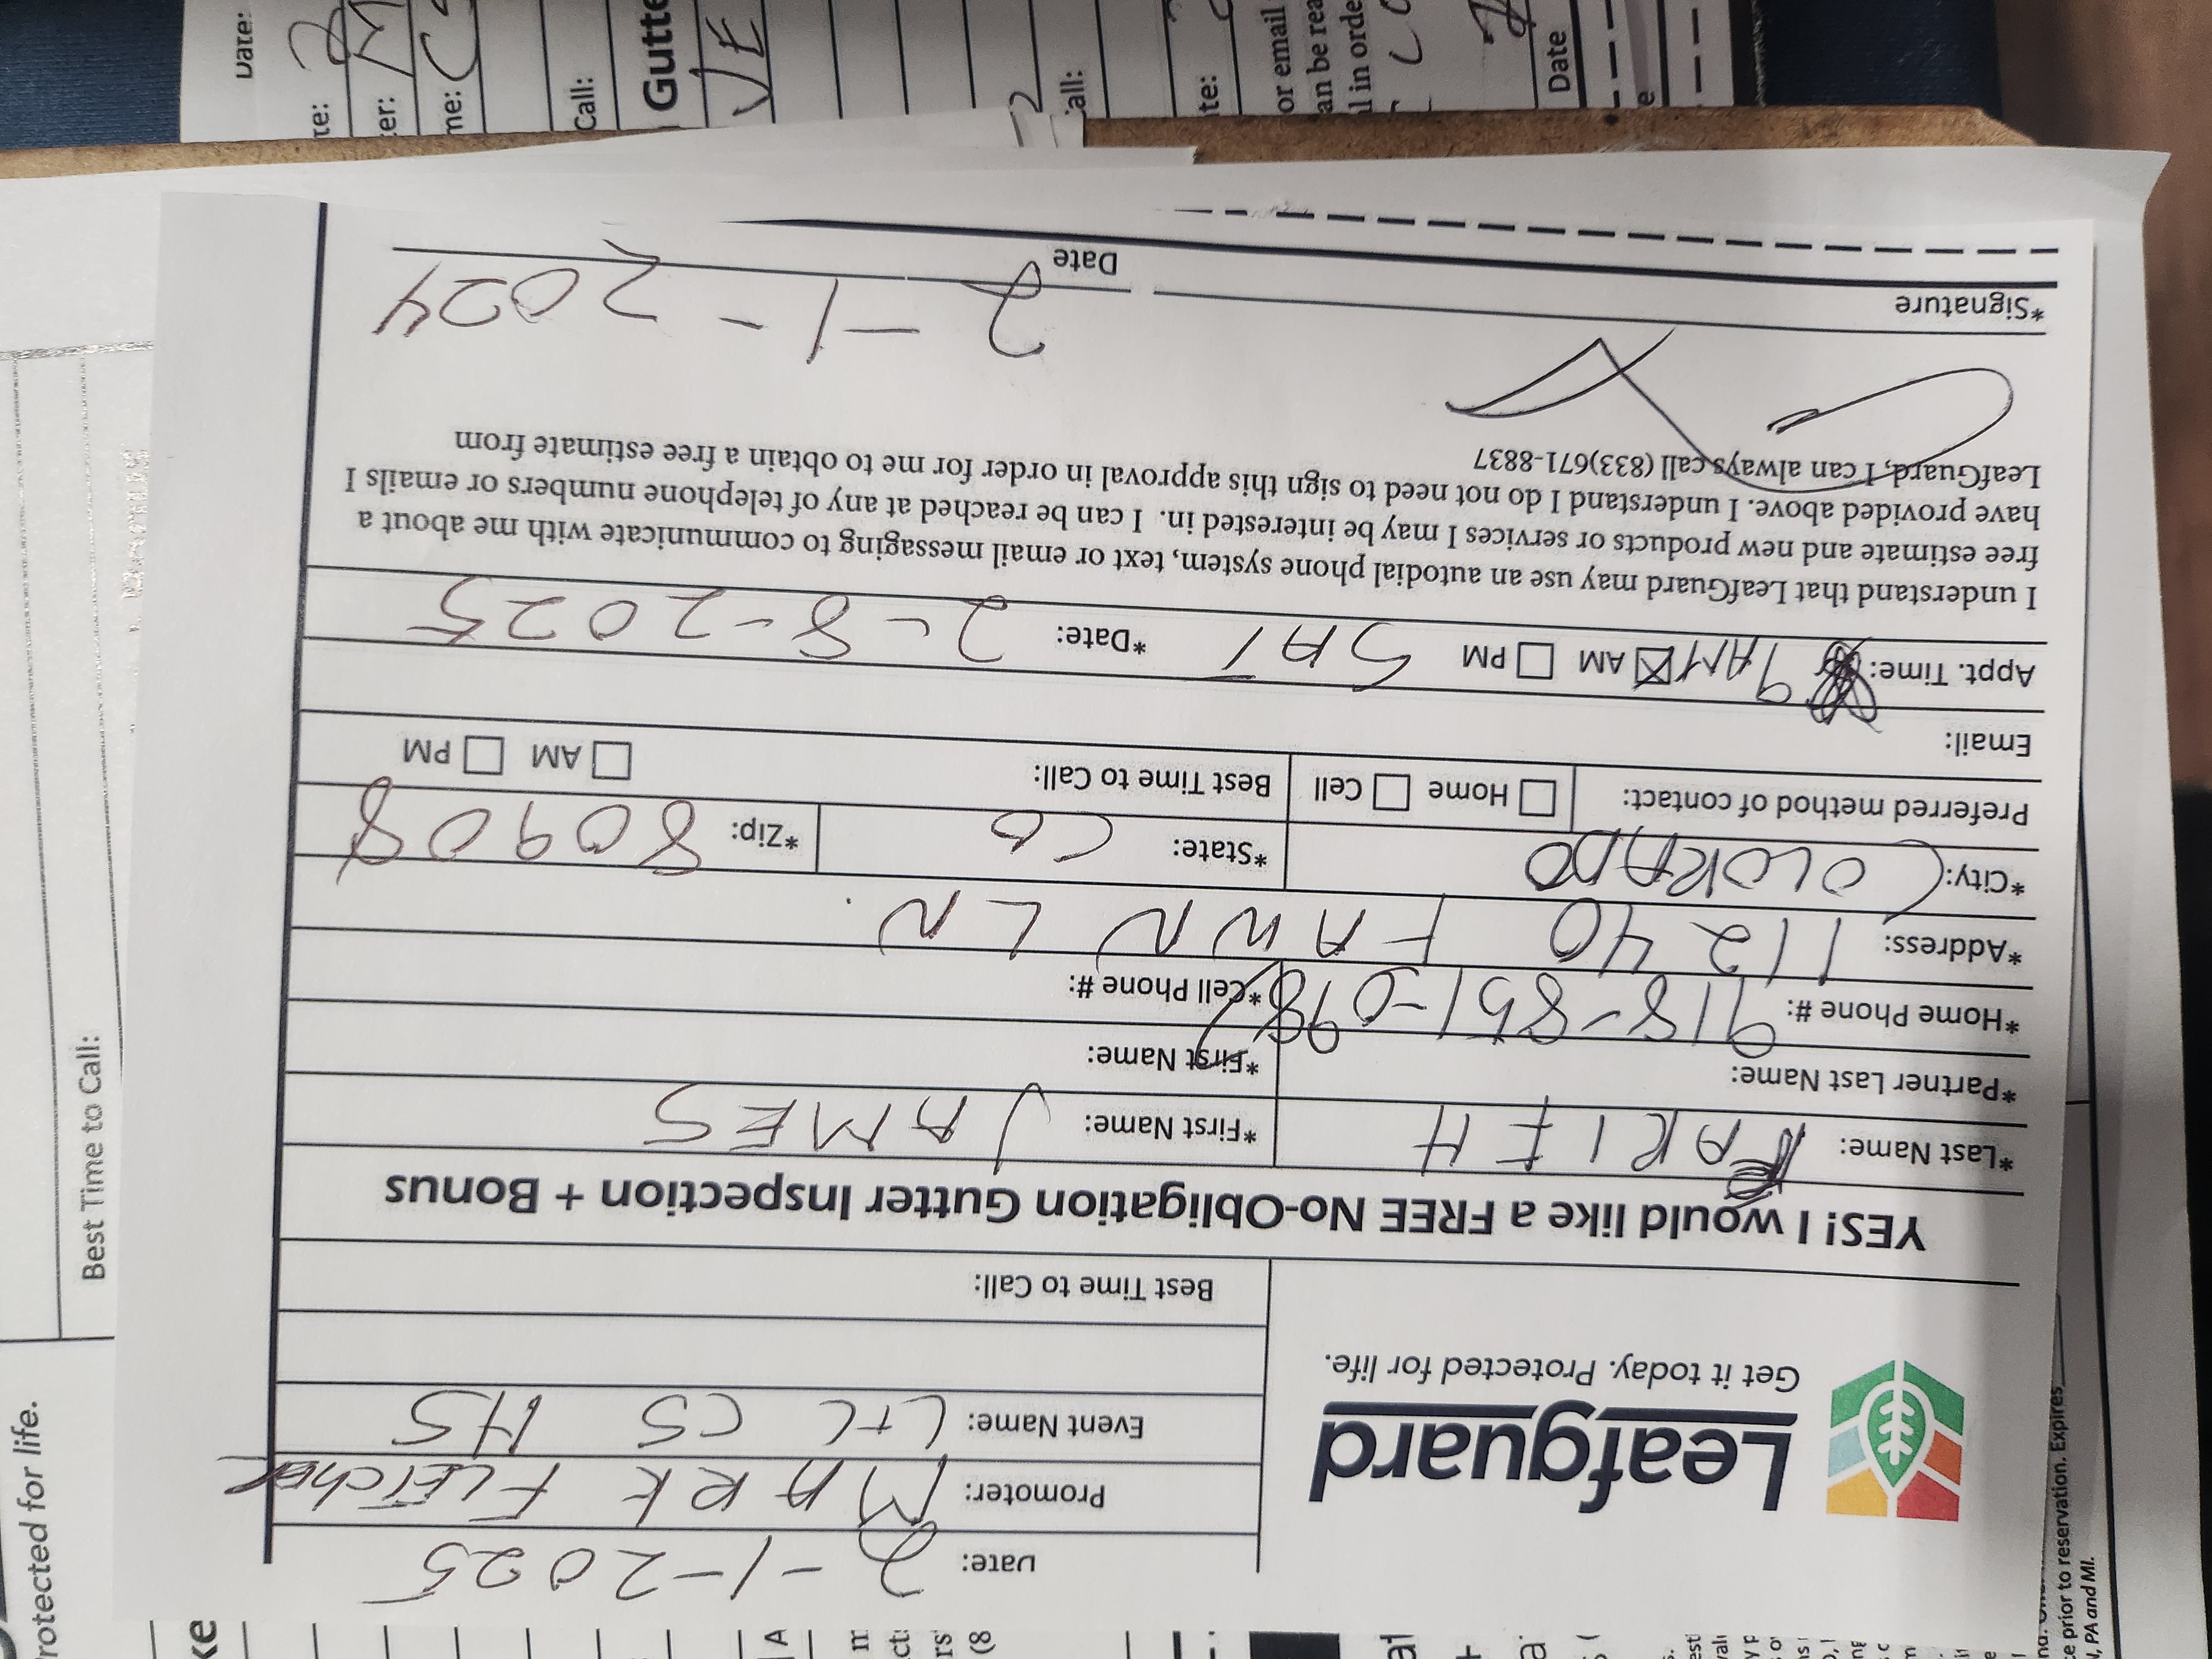 Protected for life.
Best Time to Call:
Leafguard
Get it today. Protected for life.
Date: 2-1-2025
Promoter: MARK FLETCher
Event Name: L+L CS HS
Best Time to Call:
YES! I would like a FREE No-Obligation Gutter Inspection + Bonus
*Last Name: *First Name: JAMES
*Partner Last Name: *First Name:
*Home Phone #: 918-851-098 *Cell Phone #:
*Address: 11240 FAWN LN.
*City: COLORADO *State: CO *Zip: 80908
Preferred method of contact: Home Cell Best Time to Call: AM PM
Email:
Appt. Time: 9AM AM PM SAT *Date: 2-8-2025
I understand that LeafGuard may use an autodial phone system, text or email messaging to communicate with me about a
free estimate and new products or services I may be interested in. I can be reached at any of telephone numbers or emails I
have provided above. I understand I do not need to sign this approval in order for me to obtain a free estimate from
LeafGuard, I can always call (833)671-8837
2-1-2024
*Signature Date
ce prior to reservation. Expires
PA and MI.
Date:
Call:
Gutte
JE
or email
an be rea
l in orde
Date